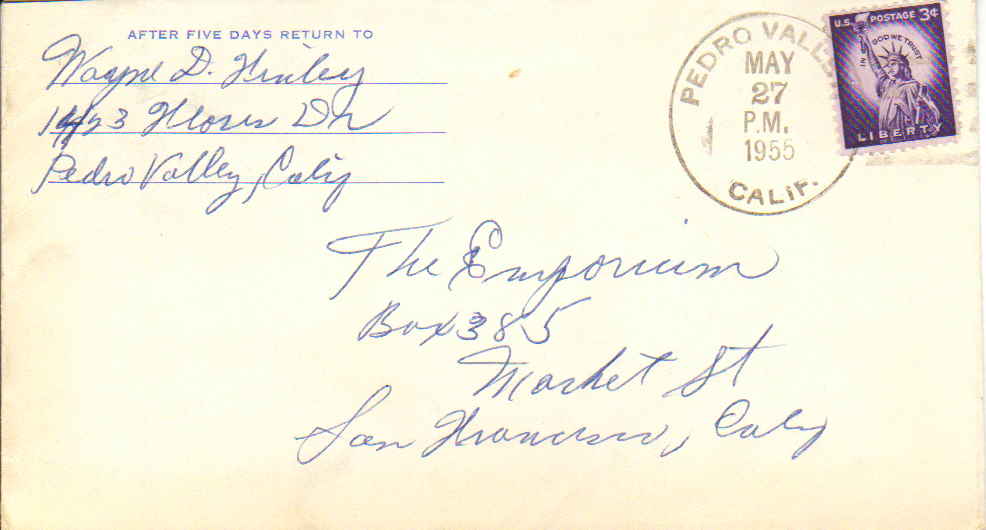 AFTER FIVE DAYS RETURN TO
Wayne D. Finley
Flores Dr
Pedro Valley, Calif
PEDRO VALL
MAY
27
P.M.
1955
CALIF.
U.S. POSTAGE 3¢
IN GOD WE TRUST
LIBERTY
The Emporium
Box 385
Market St
San Francisco, Calif